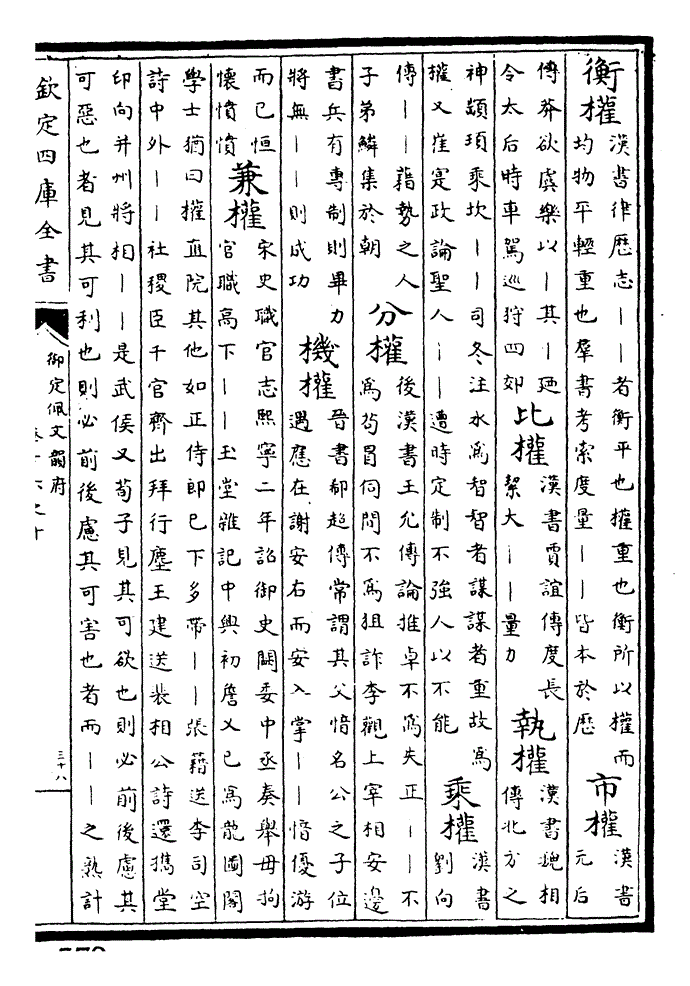 衡權漢書律歷志｜｜者衡平也權重也衡所以權而
均物平輕重也羣書考索度量｜｜皆本於歷市權漢書元后
傳莽欲虞樂以｜其｜廼
令太后時車駕巡狩四郊比權漢書賈誼傳度長
絜大｜｜量力執權漢書魏相
傳北方之
神顓頊乘坎｜｜司冬注水為智智者謀謀者重故為
權又崔寔政論聖人｜｜遭時定制不強人以不能乘權漢書
劉向
傳｜｜藉勢之人
子弟鱗集於朝分權後漢書王允傳論推卓不為失正｜｜不
為苟冒伺間不為狙詐李觀上宰相安邊
書兵有專制則畢力
將無｜｜則成功機權晉書郗超傳常謂其父愔名公之子位
遇應在謝安右而安入掌｜｜愔優游
而已恒
懷憤憤兼權宋史職官志熙寧二年詔御史闕委中丞奏舉毋拘
官職高下｜｜玉堂雜記中興初詹乂已為龍圖閣
學士猶曰權直院其他如正侍郎已下多帶｜｜張籍送李司空
詩中外｜｜社稷臣千官齊出拜行塵王建送裴相公詩還攜堂
印向并州將相｜｜是武侯又荀子見其可欲也則必前後慮其
可惡也者見其可利也則必前後慮其可害也者而｜｜之熟計
欽定四庫全書
御定佩文韻府
三十八